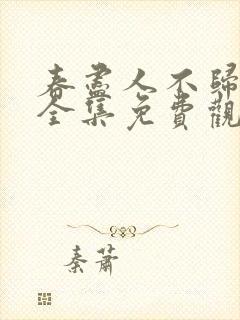 春盡人不歸
全集免費觀
秦蕭